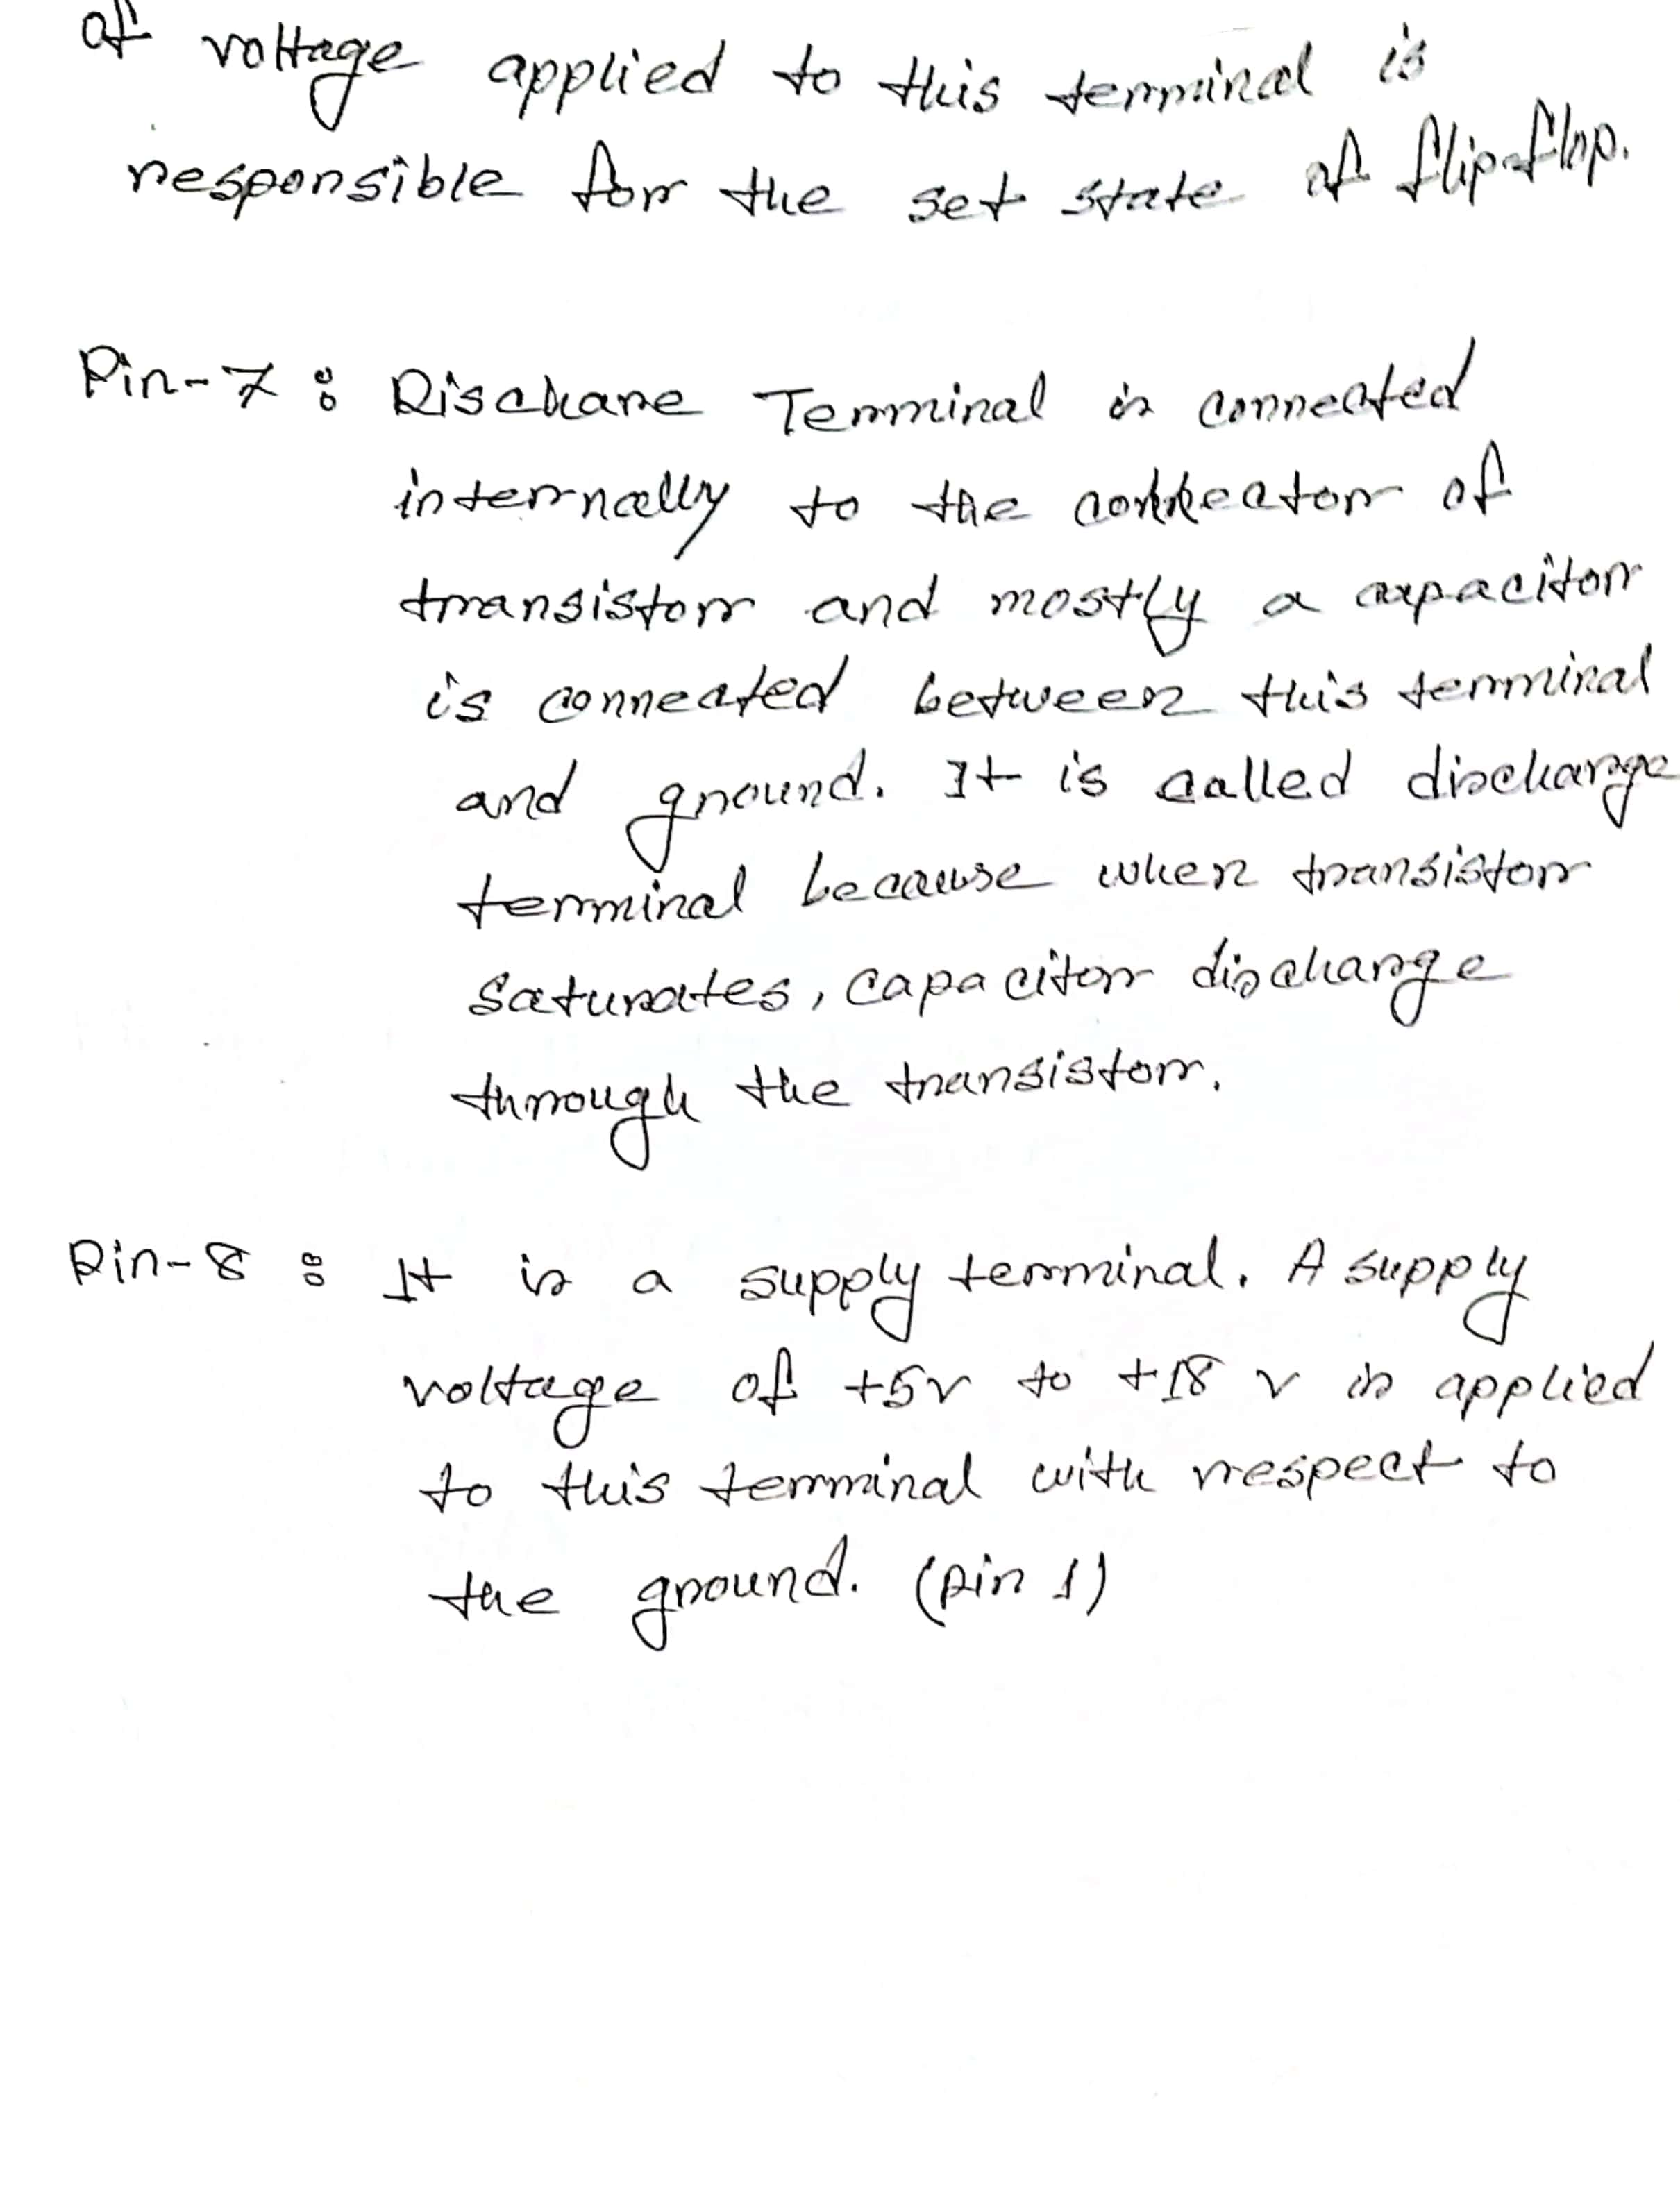 of voltage applied to this terminal is
responsible for the set state of flip-flop.
Pin-7 : Dischare Terminal is connected
internally to the of
transistor and mostly a capacitor
is connected between this terminal
and ground. It is called discharge
terminal because when transistor
saturates, capacitor discharge
through the transistor.
Pin-8 : It is a supply terminal. A supply
voltage of +5v to +18 v is applied
to this terminal with respect to
the ground. (pin 1)